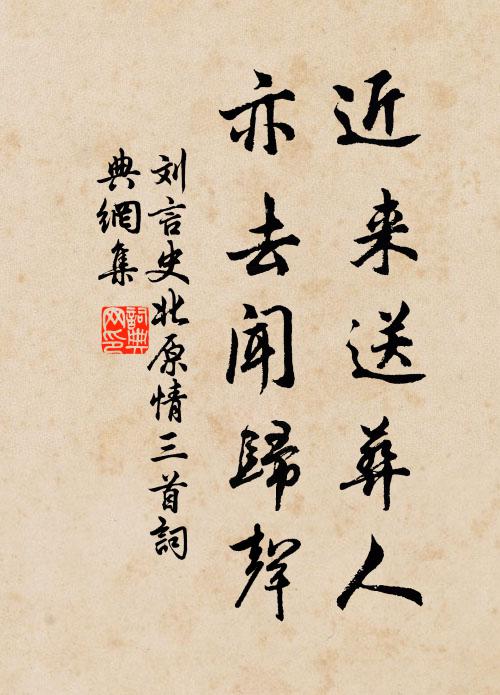 近来送葬人
亦去闻歸聲
刘言史北原情三首詞
典網集
詞典
网印